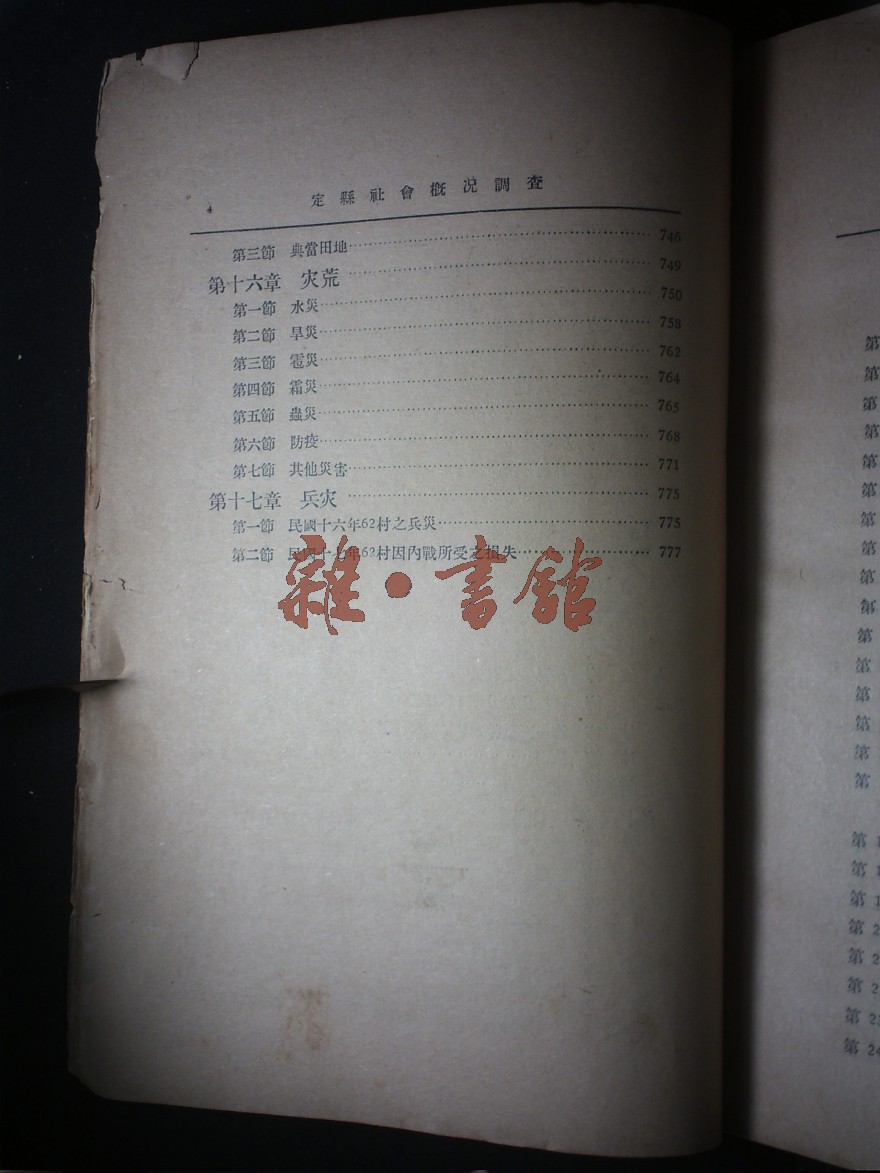 定縣社會概況調査
第三節 典當田地 746
第十六章 灾荒 749
第一節 水災 750
第二節 旱災 758
第三節 雹災 762
第四節 霜災 764
第五節 蟲災 765
第六節 防疫 768
第七節 其他災害 771
第十七章 兵灾 775
第一節 民國十六年62村之兵災 775
第二節 民國十七年62村因內戰所受之損失 777
雜·書館
第
第
第
第
第
第
第
第
第
第
第
第
第
第
第
第
第 1
第 1
第 1
第 2
第 2
第 2
第 23
第 24